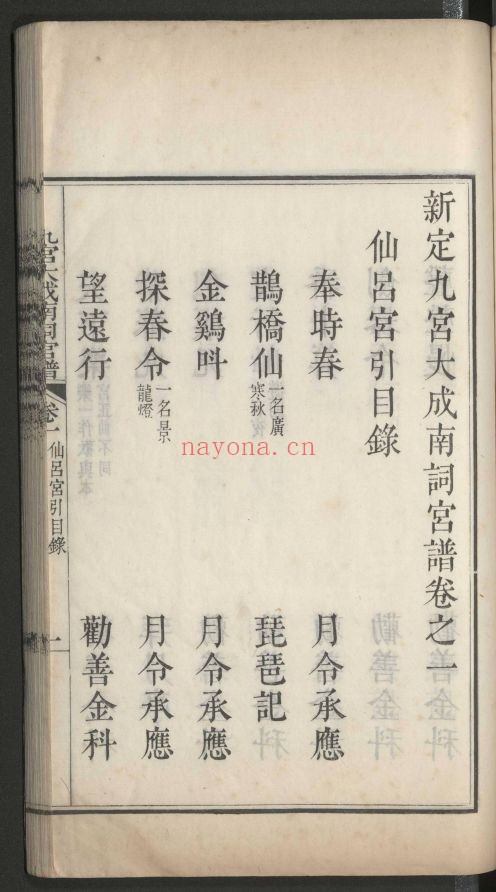 新定九宮大成南詞宮譜卷之一
仙呂宮引目錄
奉時春 月令承應
鵲橋仙 一名廣寒秋 琵琶記
金鷄呌 月令承應
探春令 一名景龍燈 月令承應
望遠行 勸善金科
九宮大成南詞宮譜 卷一 仙呂宮引目錄 一
nayona.cn